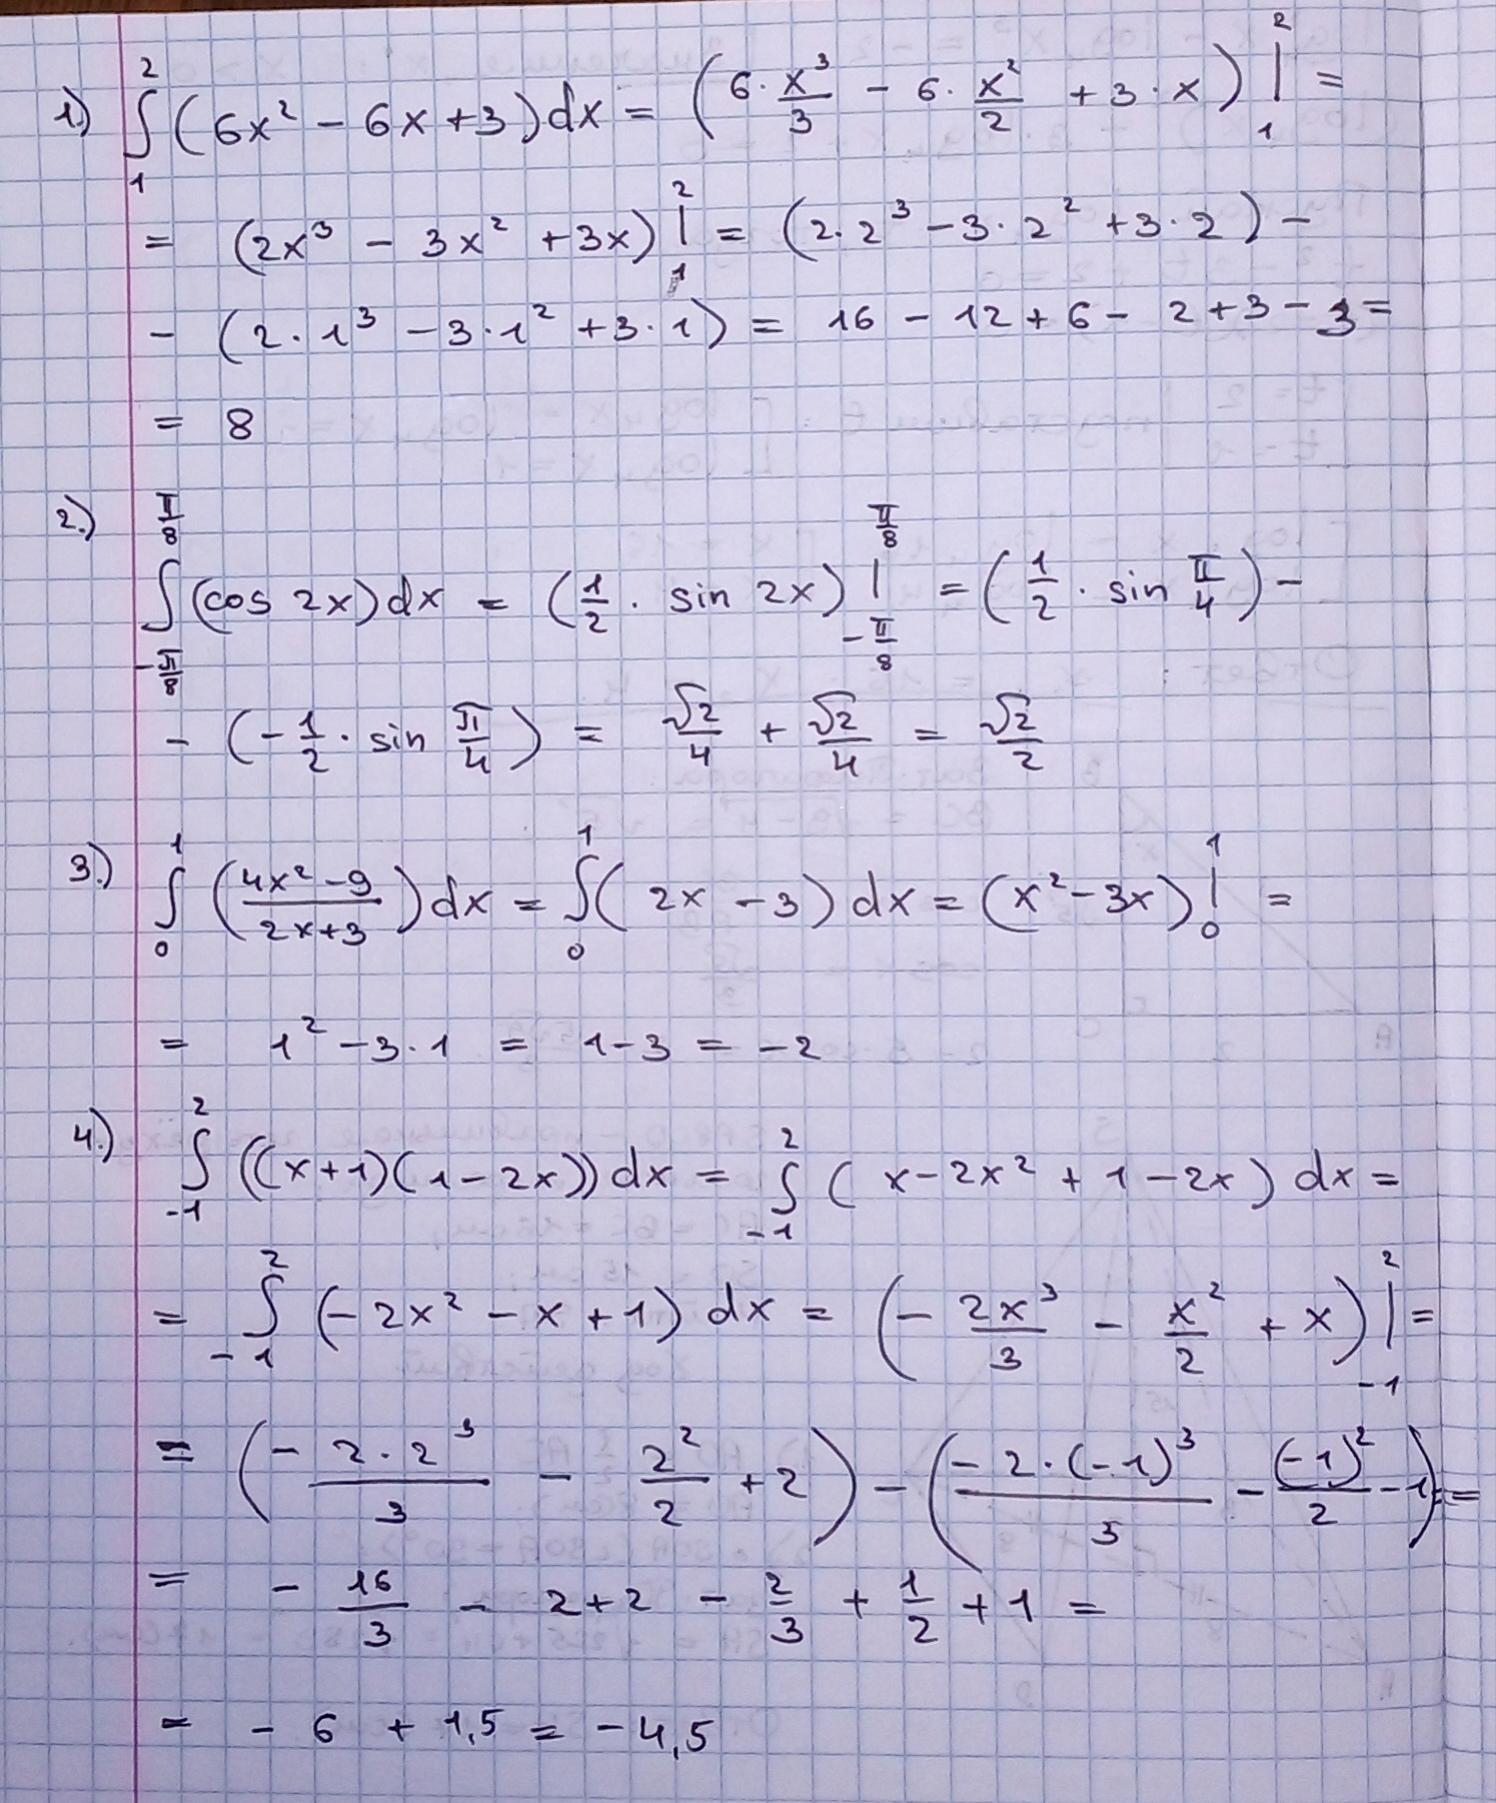 1.) ∫₁² (6x² − 6x + 3)dx = (6·x³/3 − 6·x²/2 + 3·x)|₁² =
= (2x³ − 3x² + 3x)|₁² = (2·2³ − 3·2² + 3·2) −
− (2·1³ − 3·1² + 3·1) = 16 − 12 + 6 − 2 + 3 − 3 =
= 8
2.) ∫_{−π/8}^{π/8} (cos 2x)dx = (1/2 · sin 2x)|_{−π/8}^{π/8} = (1/2 · sin π/4) −
− (−1/2 · sin π/4) = √2/4 + √2/4 = √2/2
3.) ∫₀¹ ((4x² − 9)/(2x+3))dx = ∫₀¹ (2x − 3)dx = (x² − 3x)|₀¹ =
= 1² − 3·1 = 1 − 3 = −2
4.) ∫₋₁² ((x+1)(1−2x))dx = ∫₋₁² (x − 2x² + 1 − 2x)dx =
= ∫₋₁² (−2x² − x + 1)dx = (−2x³/3 − x²/2 + x)|₋₁² =
= (−2·2³/3 − 2²/2 + 2) − (−2·(−1)³/3 − (−1)²/2 − 1) =
= −16/3 − 2 + 2 − 2/3 + 1/2 + 1 =
= −6 + 1,5 = −4,5